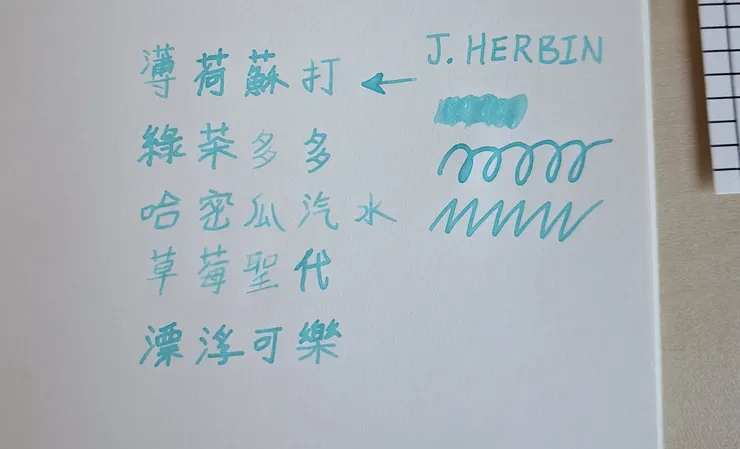 薄荷蘇打
J. HERBIN
綠茶多多
哈密瓜汽水
草莓聖代
漂浮可樂